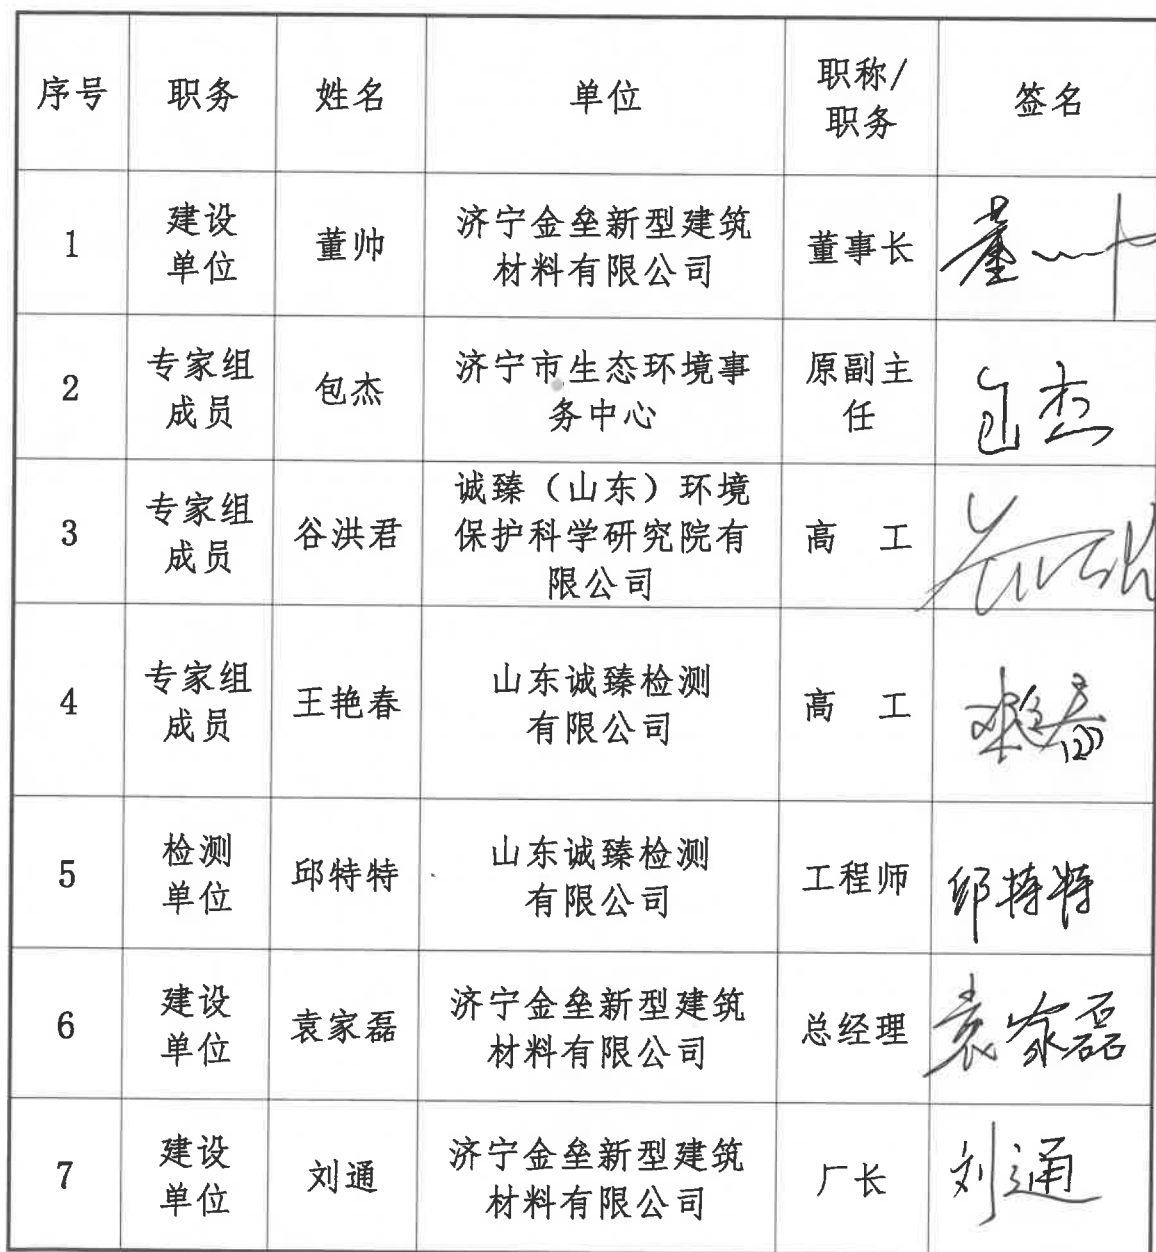 序号 职务 姓名 单位 职称/
职务 签名
1 建设
单位 董帅 济宁金垒新型建筑
材料有限公司 董事长
2 专家组
成员 包杰 济宁市生态环境事
务中心 原副主
任 包杰
3 专家组
成员 谷洪君 诚臻（山东）环境
保护科学研究院有
限公司 高 工
4 专家组
成员 王艳春 山东诚臻检测
有限公司 高 工
5 检测
单位 邱特特 山东诚臻检测
有限公司 工程师 邱特特
6 建设
单位 袁家磊 济宁金垒新型建筑
材料有限公司 总经理 袁家磊
7 建设
单位 刘通 济宁金垒新型建筑
材料有限公司 厂长 刘通